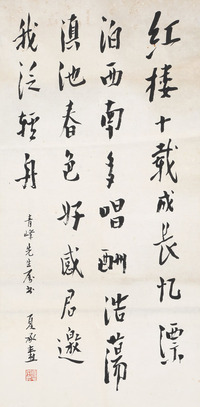 红楼十载成长忆漂
泊西南多唱酬浩荡
滇池春色好感君邀
我泛轻舟
青峰先生属书 夏承焘